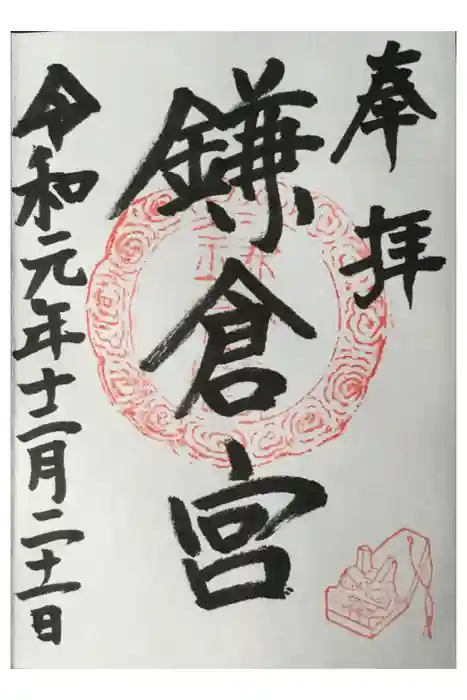 奉拝
鎌倉宮
令和元年十一月二十一日